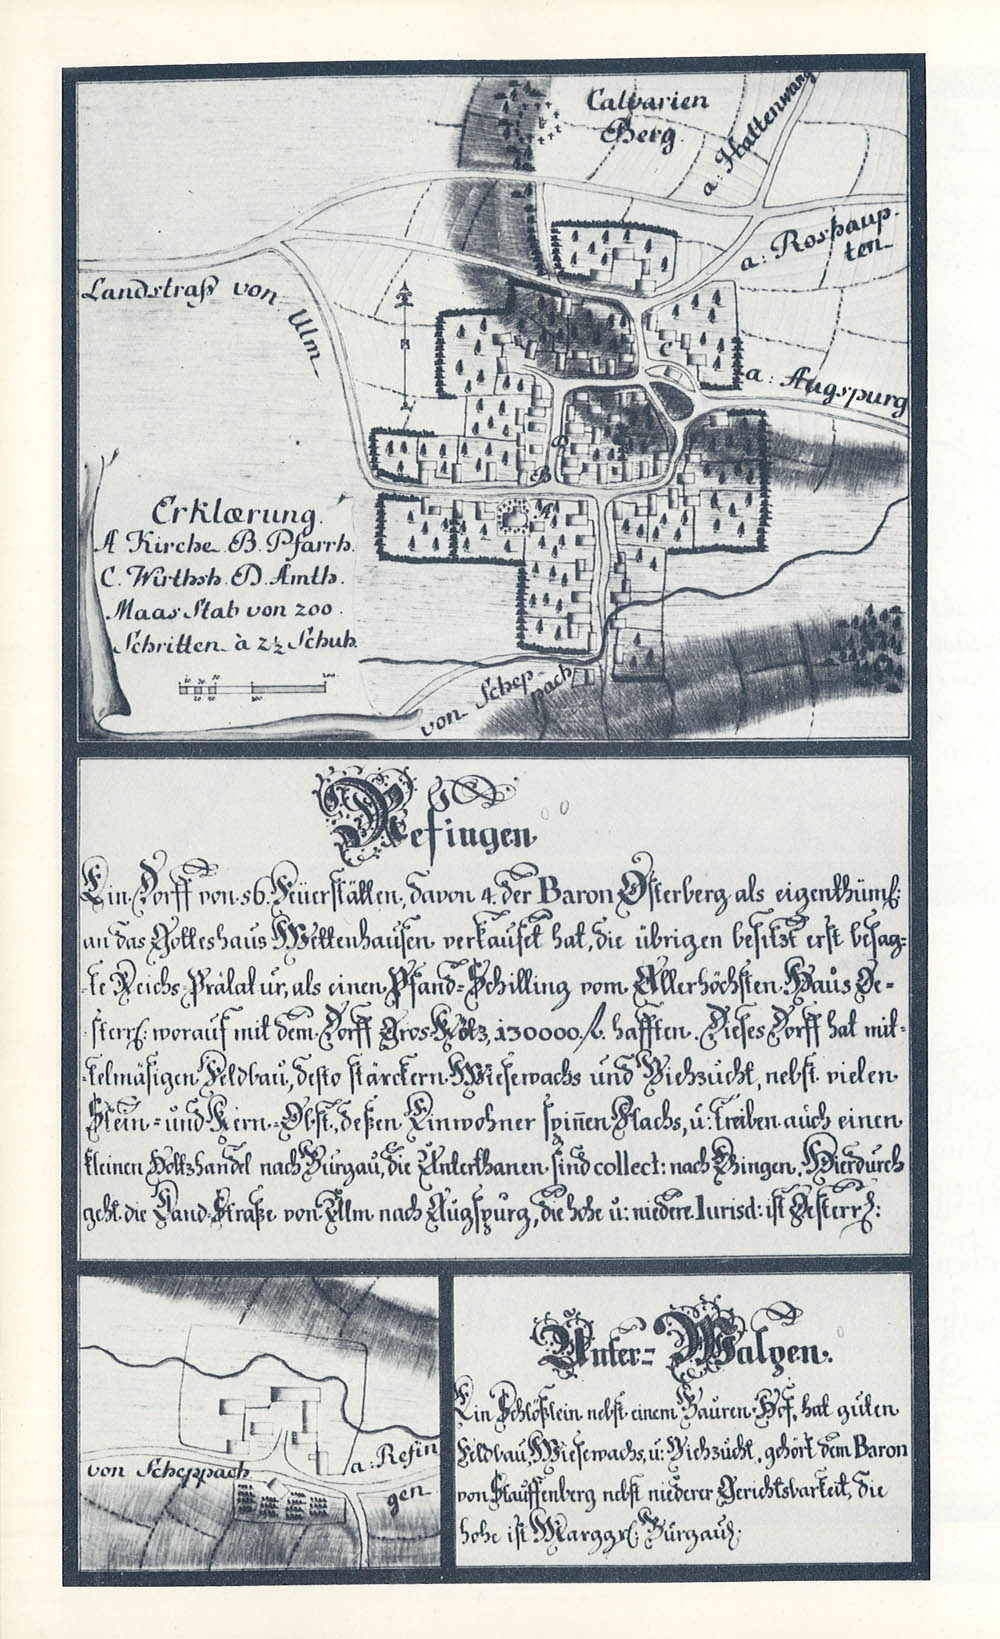 Calvarien
Berg.
a: Hattenwang
a: Roshaup-
ten
Landstraß von Ulm
a: Augspurg
C
D
B
A
Erklærung.
A Kirche B. Pfarrh.
C. Wirthsh. D. Amth.
Maas Stab von 200.
Schritten à 2½ Schuh.
von Schep
pach
Refingen
Ein Dorff von 56. Feüerstätten, davon 4. der Baron Osterberg als eigenthüml:
an das Gotteshaus Wettenhausen verkaufet hat, die übrigen besitzt erst besag-
te Reichs-Prälatur, als einen Pfand-Schilling vom Allerhöchsten Haus Oe-
sterr: worauf mit dem Dorff Gros-Kötz, 130000. f. hafften. Dieses Dorff hat mit-
telmäsigen Feldbau, desto stärckern Wiesewachs und Viehzucht, nebst vielen
Stein- und Kern-Obst, deßen Einwohner spinen Flachs, u: treiben auch einen
kleinen Holtzhandel nach Burgau, die Unterthanen sind collect: nach Bingen. Hierdurch
geht die Land-Straße von Ulm nach Augspurg, die hohe u: niedere Iurisd: ist Oesterr:
von Scheppach
a: Refin
gen
Unter-Walgen.
Ein Schlößlein nebst einem Bauren-Hof, hat guten
Feldbau, Wiesewachs, u: Viehzucht, gehört dem Baron
von Stauffenberg nebst niederer Gerichtsbarkeit, die
hohe ist Marggr: Burgau: